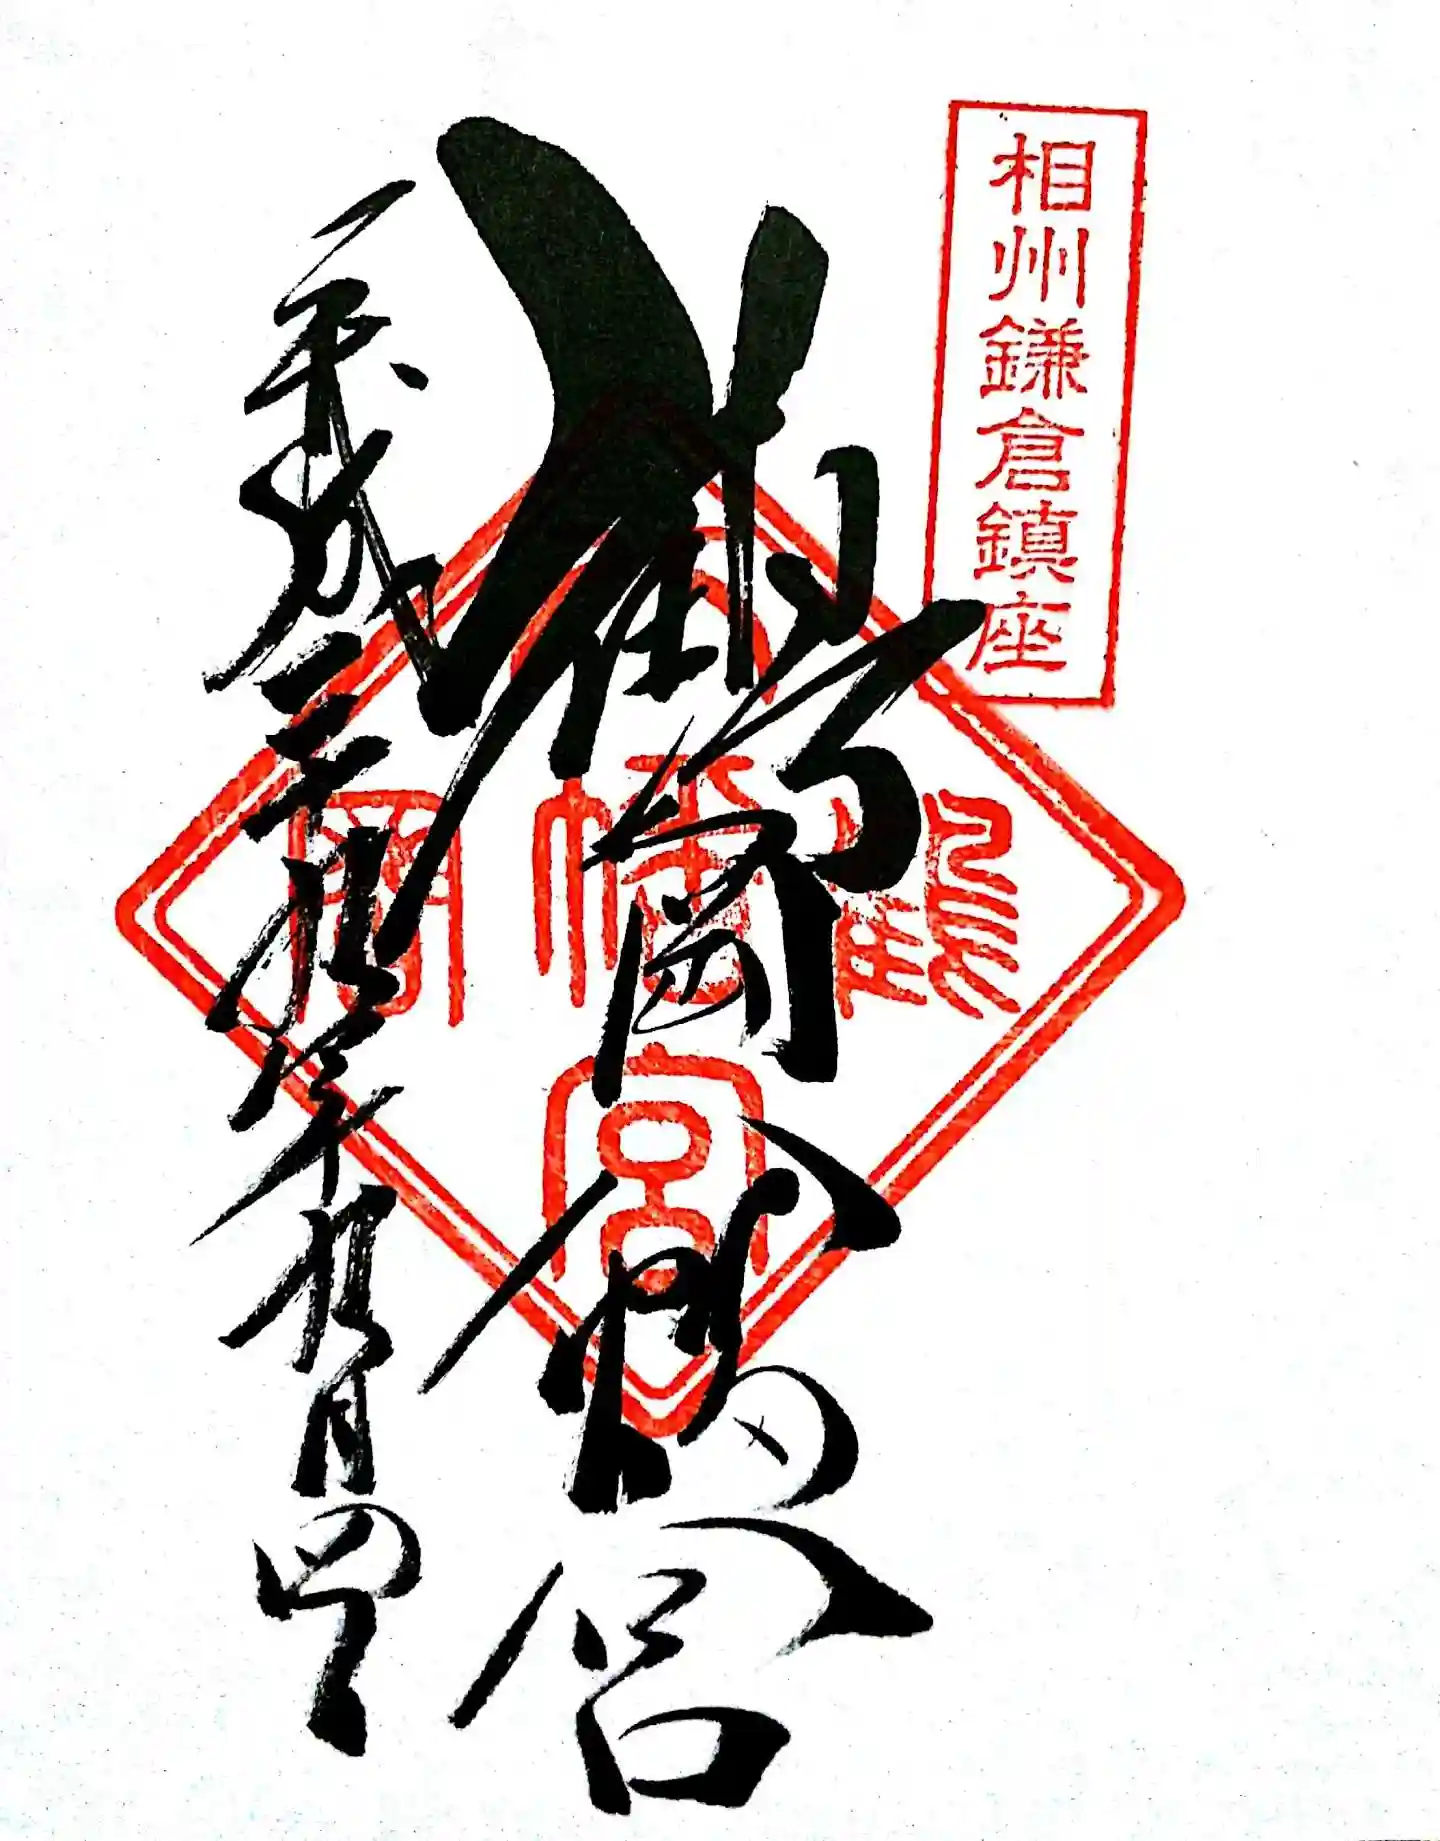 相州鎌倉鎮座
鶴岡八幡宮
鶴岡八幡宮
平成二十九年九月四日